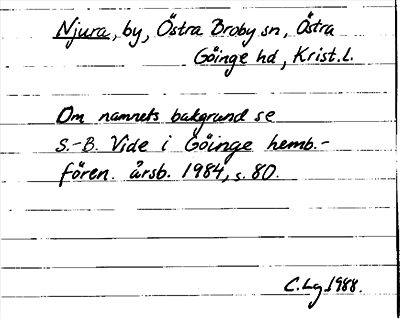 Njura, by, Östra Broby sn, Östra
Göinge hd, Krist. l.
Om namnets bakgrund se
S.-B. Vide i Göinge hemb.-
fören. årsb. 1984, s. 80.
C. Lg 1988.